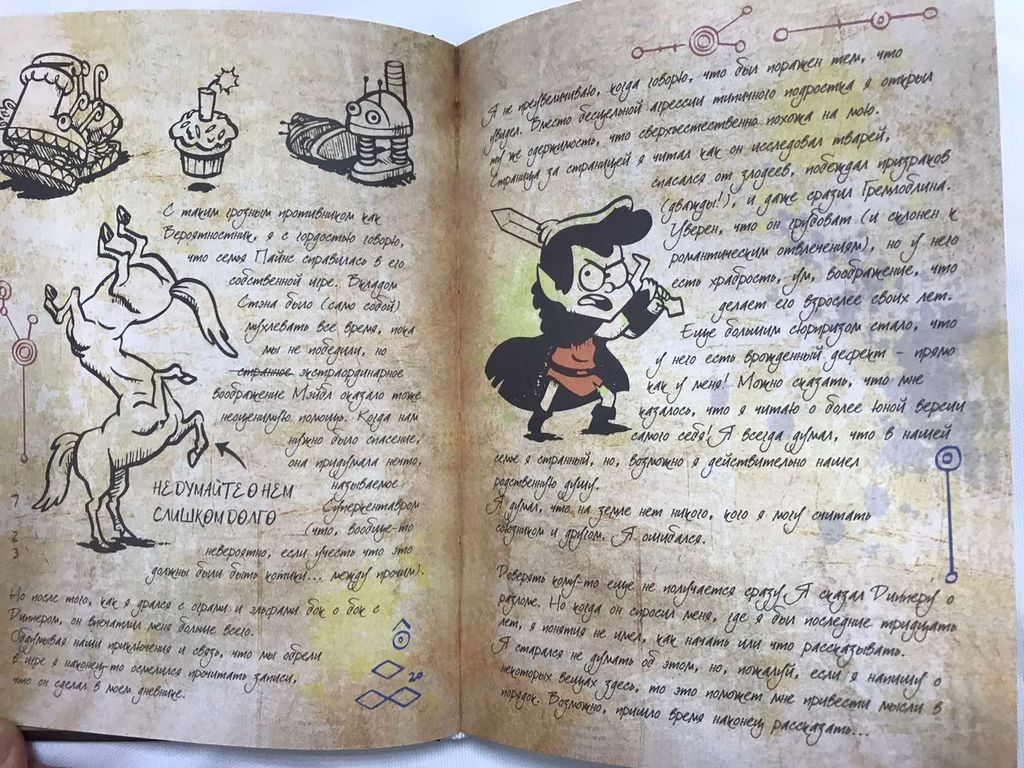 С таким грозным противником как
Вероятностник, я с гордостью говорю,
что семья Пайнс справилась в его
собственной игре. Вкладом
Стэна было (само собой)
мухлевать всё время, пока
мы не победили, но
странное экстраординарное
воображение Мэйбл оказало тоже
неоценимую помощь. Когда нам
нужно было спасение,
она придумала нечто,
называемое
Суперкентавром
(что, вообще-то
невероятно, если учесть что это
должны были быть котики... между прочим).
НЕ ДУМАЙТЕ О НЕМ
СЛИШКОМ ДОЛГО
7
2
3
Но после того, как я дрался с ограми и эльфами бок о бок с
Диппером, он впечатлил меня больше всего.
Обдумывая наши приключения и связь, что мы обрели
в игре я наконец-то осмелился прочитать записи,
что он сделал в моем дневнике.
20
Я не преувеличиваю, когда говорю, что был поражен тем, что
увидел. Вместо бесцельной агрессии типичного подростка я открыл
ту же одержимость, что сверхъестественно похожа на мою.
Страница за страницей я читал как он исследовал тварей,
спасался от злодеев, побеждал призраков
(дважды!), и даже сразил Гремлоблина.
Уверен, что он грубоват (и склонен к
романтическим отвлечениям), но у него
есть храбрость, ум, воображение, что
делает его взрослее своих лет.
Еще большим сюрпризом стало, что
у него есть врожденный дефект - прямо
как у меня! Можно сказать, что мне
казалось, что я читаю о более юной версии
самого себя! Я всегда думал, что в нашей
семье я странный, но, возможно я действительно нашел
родственную душу.
Я думал, что на земле нет никого, кого я могу считать
союзником и другом. Я ошибался.
Доверять кому-то еще не получается сразу. Я сказал Дипперу о
разломе. Но когда он спросил меня, где я был последние тридцать
лет, я понятия не имел, как начать или что рассказывать.
Я старался не думать об этом, но, пожалуй, если я напишу о
некоторых вещах здесь, то это поможет мне привести мысли в
порядок. Возможно, пришло время наконец рассказать...